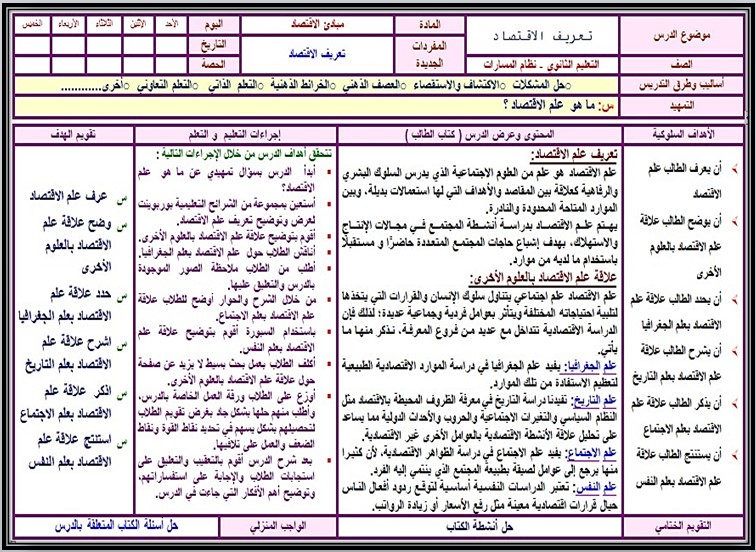 موضوع الدرس
تعريف الاقتصاد
المادة
مبادئ الاقتصاد
اليوم
الأحد
الإثنين
الثلاثاء
الأربعاء
الخميس
المفردات الجديدة
تعريف الاقتصاد
التاريخ
الصف
التعليم الثانوي - نظام المسارات
الحصة
أساليب وطرق التدريس
○حل المشكلات ○الاكتشاف والاستقصاء ○العصف الذهني ○الخرائط الذهنية ○التعلم الذاتي ○التعلم التعاوني ○أخرى............
التمهيد
س: ما هو علم الاقتصاد ؟
الأهداف السلوكية
المحتوى وعرض الدرس ( كتاب الطالب )
إجراءات التعليم و التعلم
تقويم الهدف
أن يعرف الطالب علم
الاقتصاد
أن يوضح الطالب علاقة
علم الاقتصاد بالعلوم
الأخرى
أن يحدد الطالب علاقة علم
الاقتصاد بعلم الجغرافيا
أن يشرح الطالب علاقة
علم الاقتصاد بعلم التاريخ
أن يذكر الطالب علاقة علم
الاقتصاد بعلم الاجتماع
أن يستنتج الطالب علاقة
علم الاقتصاد بعلم النفس
تعريف علم الاقتصاد:
علم الاقتصاد هو علم من العلوم الاجتماعية الذي يدرس السلوك البشري
والرفاهية كعلاقة بين المقاصد والأهداف التي لها استعمالات بديلة، وبين
الموارد المتاحة المحدودة والنادرة.
يهتم علم الاقتصاد بدراسة أنشطة المجتمع في مجالات الإنتاج
والاستهلاك، بهدف إشباع حاجات المجتمع المتعددة حاضرًا و مستقبلًا
باستخدام ما لديه من موارد.
علاقة علم الاقتصاد بالعلوم الأخرى:
علم الاقتصاد علم اجتماعي يتناول سلوك الإنسان والقرارات التي يتخذها
لتلبية احتياجاته المختلفة ويتأثر بعوامل فردية وجماعية عديدة؛ لذلك فإن
الدراسة الاقتصادية تتداخل مع عديد من فروع المعرفة، نذكر منها ما
يأتي.
علم الجغرافيا: يفيد علم الجغرافيا في دراسة الموارد الاقتصادية الطبيعية
لتعظيم الاستفادة من تلك الموارد.
علم التاريخ: تفيدنا دراسة التاريخ في معرفة الظروف المحيطة بالاقتصاد مثل
النظام السياسي والتغيرات الاجتماعية والحروب والأحداث الدولية مما يساعد
على تحليل علاقة الأنشطة الاقتصادية بالعوامل الأخرى غير الاقتصادية.
علم الاجتماع: يفيد علم الاجتماع في دراسة الظواهر الاقتصادية، لأن كثيرا
منها يرجع إلى عوامل لصيقة بطبيعة المجتمع الذي ينتمي إليه الفرد.
علم النفس: تعتبر الدراسات النفسية أساسية لتوقع ردود أفعال الناس
حيال قرارات اقتصادية معينة مثل رفع الأسعار أو زيادة الرواتب.
تتحقق أهداف الدرس من خلال الإجراءات التالية :
أبدأ الدرس بسؤال تمهيدي عن ما هو علم
الاقتصاد؟
أستعين بمجموعة من الشرائح التعليمية بوربوينت
لعرض وتوضيح تعريف علم الاقتصاد.
أقوم بتوضيح علاقة علم الاقتصاد بالعلوم الأخرى.
أناقش الطلاب حول علم الاقتصاد بعلم الجغرافيا.
أطلب من الطلاب ملاحظة الصور الموجودة
بالدرس والتعليق عليها.
من خلال الشرح والحوار أوضح للطلاب علاقة
علم الاقتصاد بعلم الاجتماع.
باستخدام السبورة أقوم بتوضيح علاقة علم
الاقتصاد بعلم النفس.
أكلف الطلاب بعمل بحث بسيط لا يزيد عن صفحة
حول علاقة علم الاقتصاد بالعلوم الأخرى.
أوزع على الطلاب ورقة العمل الخاصة بالدرس،
وأطلب منهم حلها بشكل جاد بغرض تقويم الطلاب
لتحصيلهم بشكل يسهم في تحديد نقاط القوة ونقاط
الضعف والعمل على تلافيها.
بعد شرح الدرس أقوم بالتعقيب والتعليق على
استجابات الطلاب والإجابة على استفساراتهم،
وتوضيح أهم الأفكار التي جاءت في الدرس.
س عرف علم الاقتصاد
س وضح علاقة علم
الاقتصاد بالعلوم
الأخرى
س حدد علاقة علم
الاقتصاد بعلم الجغرافيا
س اشرح علاقة علم
الاقتصاد بعلم التاريخ
س اذكر علاقة علم
الاقتصاد بعلم الاجتماع
س استنتج علاقة علم
الاقتصاد بعلم النفس
التقويم الختامي
حل أنشطة الكتاب
الواجب المنزلي
حل أسئلة الكتاب المتعلقة بالدرس